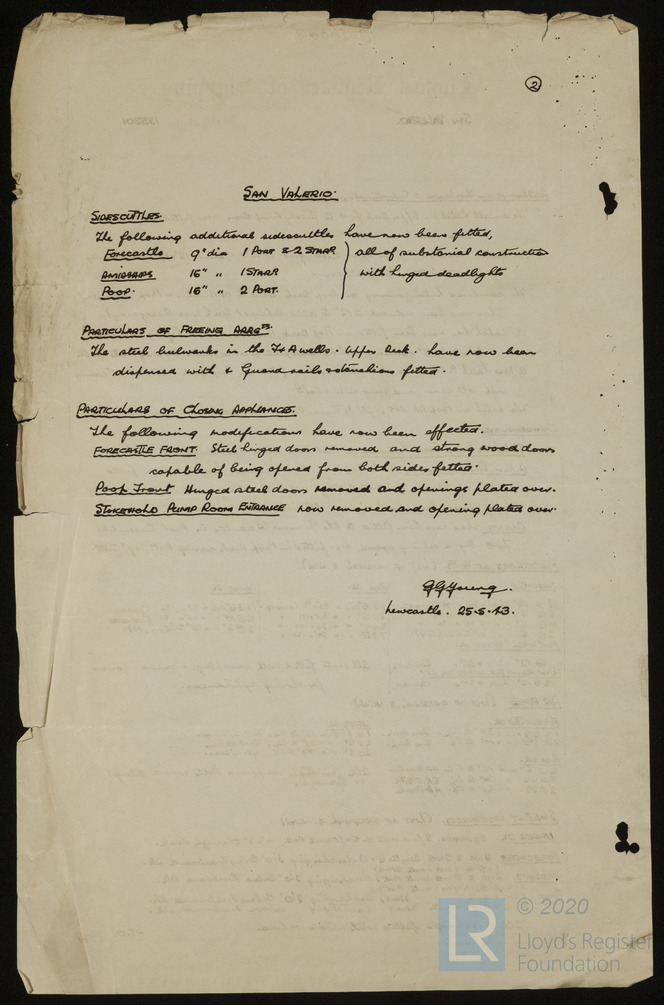 2
SAN VALERIO.
SIDESCUTTLES.
The following additional sidescuttles have now been fitted,
Forecastle 9" dia 1 PORT & 2 STARB } all of substantial construction
AMIDSHIPS 16" " 1 STARB with hinged deadlights
POOP. 16" " 2 PORT.
PARTICULARS OF FREEING ARRGTS.
The steel bulwarks in the F & A wells. Upper Deck. have now been
dispensed with & Guard rails & stanchions fitted.
PARTICULARS OF CLOSING APPLIANCES.
The following modifications have now been effected.
FORECASTLE FRONT. Steel hinged doors removed and strong wood doors
capable of being opened from both sides fitted.
Poop Front Hinged steel doors removed and openings plated over.
STOKEHOLD PUMP ROOM ENTRANCE now removed and opening plated over.
GGYoung.
Newcastle. 25.5.43.
LR © 2020
Lloyd's Register
Foundation